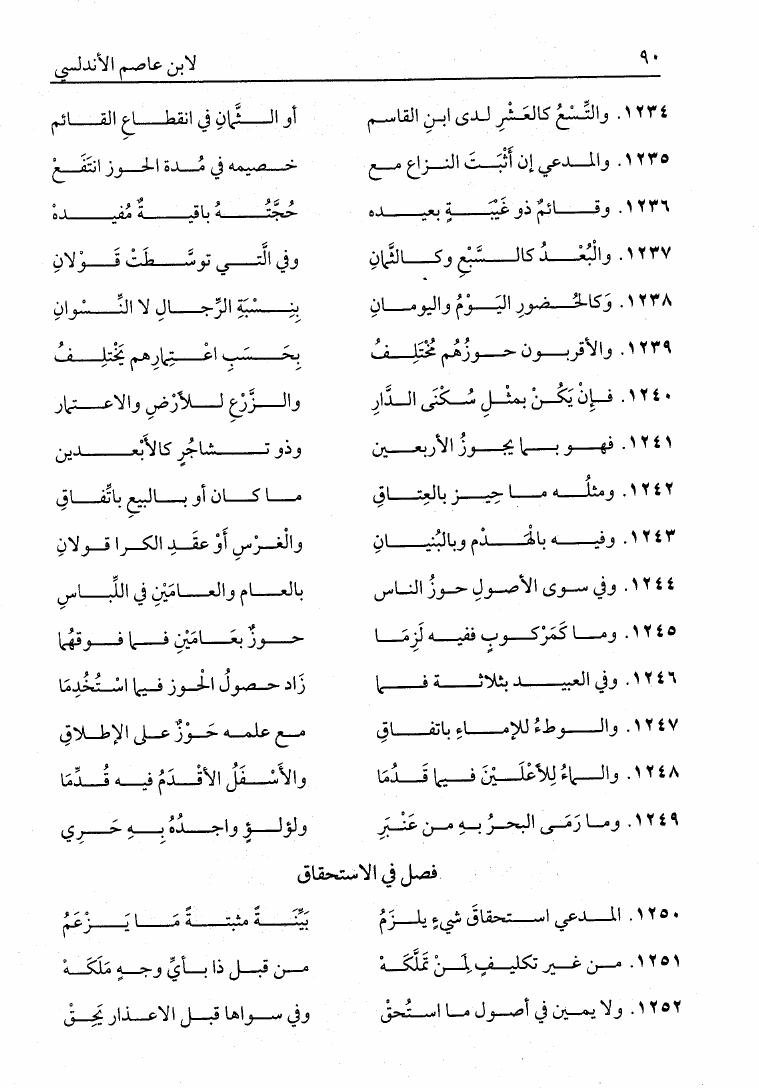 ٩٠ لابن عاصم الأندلسي
١٢٣٤. والتِّسْعُ كالعَشْرِ لدى ابنِ القاسم أو الثَّمانِ في انقطاعِ القائم
١٢٣٥. والمدعي إن أَثْبَتَ النزاع مع خصيمه في مُدة الحوز انتَفَعْ
١٢٣٦. وقائمٌ ذو غَيْبَةٍ بعيده حُجَّتُهُ باقيةٌ مُفيدهْ
١٢٣٧. والْبُعْدُ كالسَّبْعِ وكالثَّمانِ وفي الَّتي توسَّطَتْ قَوْلانِ
١٢٣٨. وَكالحُضورِ اليَوْمُ واليومانِ بِنِسْبَةِ الرِّجالِ لا النِّسْوانِ
١٢٣٩. والأقربون حوزُهُم مُخْتَلِفُ بِحَسَبِ اعْتِمارِهم يَخْتلِفُ
١٢٤٠. فإنْ يَكُنْ بمثْلِ سُكْنَى الدَّارِ والزَّرْعِ للأَرْضِ والاعتمار
١٢٤١. فهو بما يجوزُ الأربعين وذو تشاجُرٍ كالأَبْعدين
١٢٤٢. ومثلُه ما حِيز بالعِتاقِ ما كان أو بالبيعِ باتِّفاقِ
١٢٤٣. وفيه بالهَدْمِ وبالبُنْيانِ والْغَرْسِ أَوْ عقَدِ الكرا قولانِ
١٢٤٤. وفي سوى الأصولِ حوزُ الناس بالعام والعامَيْنِ في اللِّباسِ
١٢٤٥. وما كَمَرْكوبٍ ففيه لَزِمَا حوزٌ بعَامَيْنِ فما فوقهُما
١٢٤٦. وفي العبيد بثلاثة فما زاد حصولُ الحوز فيما اسْتُخْدِمَا
١٢٤٧. والوطءُ للإماءِ باتفاقِ مع علمه حَوْزٌ على الإطلاقِ
١٢٤٨. والماءُ لِلأعْلَيْنَ فيما قَدُمَا والأَسْفَلُ الأقْدَمُ فيه قُدِّمَا
١٢٤٩. وما رَمَى البحرُ بهِ من عَنْبَرِ ولؤلؤٍ واجدُهُ بِهِ حَري
فصل في الاستحقاق
١٢٥٠. المدعي استحقاقَ شيءٍ يلزَمُ بَيِّنَةً مثبتةً مَا يَزْعَمُ
١٢٥١. من غير تكليفٍ لمَنْ تَمَلَّكَهْ من قبل ذا بأيِّ وجهٍ مَلَكَهْ
١٢٥٢. ولا يمين في أصول ما استُحقْ وفي سواها قبل الاعذار يَحِقْ